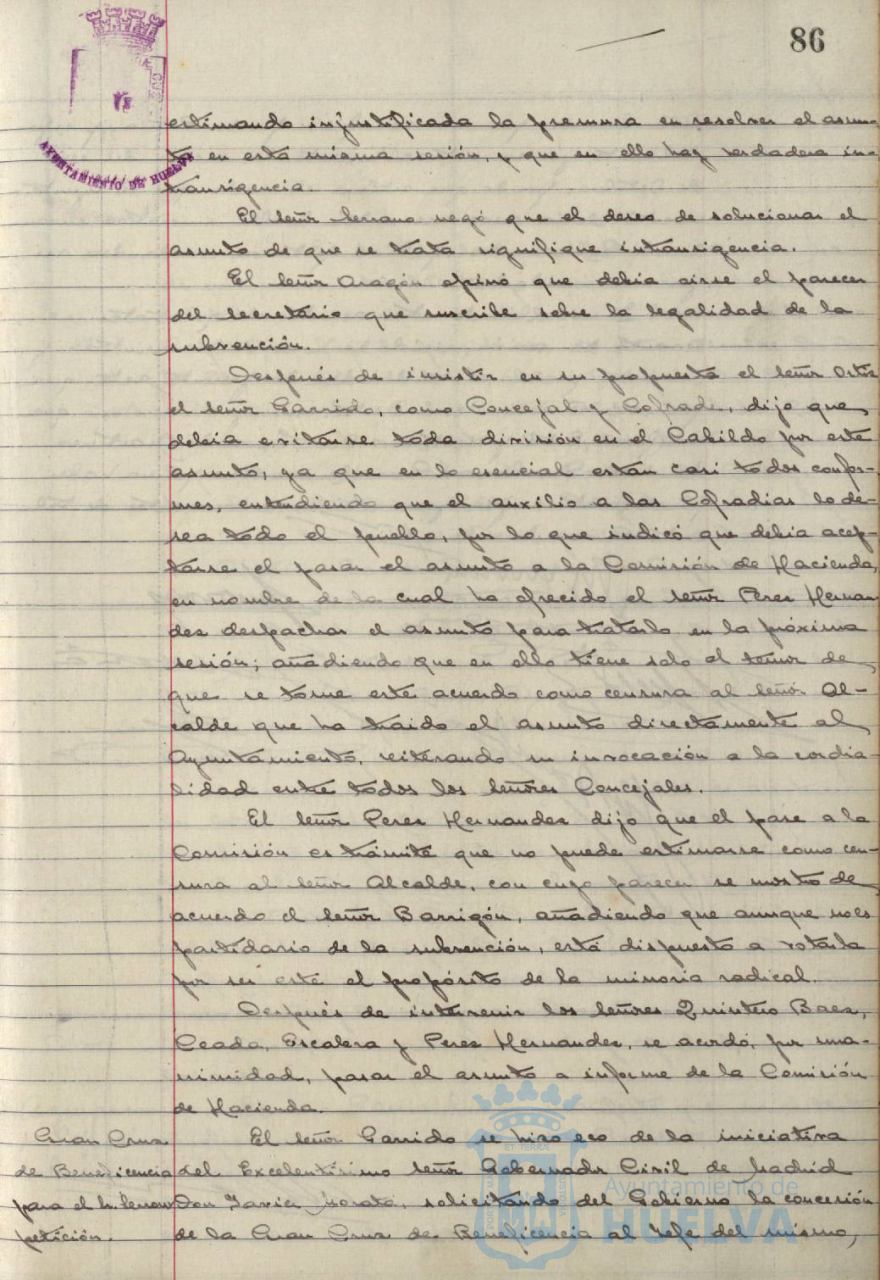 86
AYUNTAMIENTO DE HUELVA
estimando injustificada la premura en resolver el asun-
to en esta misma sesión, y que en ello hay verdadera in-
transigencia.
El señor Serrano negó que el deseo de solucionar el
asunto de que se trata signifique intransigencia.
El señor Aragón opinó que debia oirse el parecer
del secretario que suscribe sobre la legalidad de la
subvención.
Después de insistir en su propuesta el señor Ortiz
el señor Garrido, como Concejal y Cofrade, dijo que
debia evitarse toda división en el Cabildo por este
asunto, ya que en lo esencial están casi todos confor-
mes, entendiendo que el auxilio a las Cofradias lo de-
sea todo el pueblo, por lo que indicó que debia acep-
tarse el pasar el asunto a la Comisión de Hacienda,
en nombre de la cual ha ofrecido el señor Perez Hernan-
dez despachar el asunto para tratarlo en la próxima
sesión; añadiendo que en ello tiene solo el temor de
que se tome este acuerdo como censura al señor Al-
calde que ha traido el asunto directamente al
Ayuntamiento, reiterando su invocación a la cordia-
lidad entre todos los señores Concejales.
El señor Perez Hernandez dijo que el pase a la
Comisión es trámite que no puede estimarse como cen-
sura al señor Alcalde, con cuyo parecer se mostró de
acuerdo el señor Barrigón, añadiendo que aunque no es
partidario de la subvención, está dispuesto a votarla
por ser este el propósito de la minoria radical.
Después de intervenir los señores Quintero Baez,
Ceada, Escalera y Perez Hernandez, se acordó, por una-
nimidad, pasar el asunto a informe de la Comisión
de Hacienda.
Gran Cruz
de Beneficencia
para el Sr.
petición.
El señor Garrido se hizo eco de la iniciativa
del Excelentísimo señor Gobernador Civil de Madrid
Don Javier Morata, solicitando del Gobierno la concesión
de la Gran Cruz de Beneficencia al Jefe del mismo,
Ayuntamiento de
HUELVA